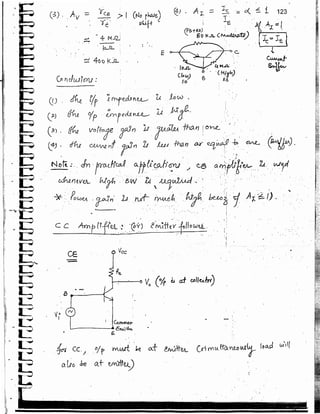 (3). Av = Vce / Ve > 1 (No phase shift)
(4). AI = Ic / IE = α ≤ 1
123
≃ 4 MΩ / kΩ
≃ 400 kΩ
AI = 1
Ic = Ie
Current Buffer
E
C
B
(low)
(High)
Conclusions:
(1) The i/p impedance is low.
(2) The o/p impedance is high.
(3). The voltage gain is greater than one
(4). The current gain is less than or equal to one (Buffer).
Note: In practical applications, CB amplifier is used
whenever high BW is required.
* Power gain is not much high becoz of AI ≤ 1).
CC Amplifier: (or) Emitter follower
CE
Vcc
Rc
Vo (o/p is at collector)
B
Vi
Common Emitter
E
for CC, o/p must be at emitter (simultaneously load will
also be at emitter)